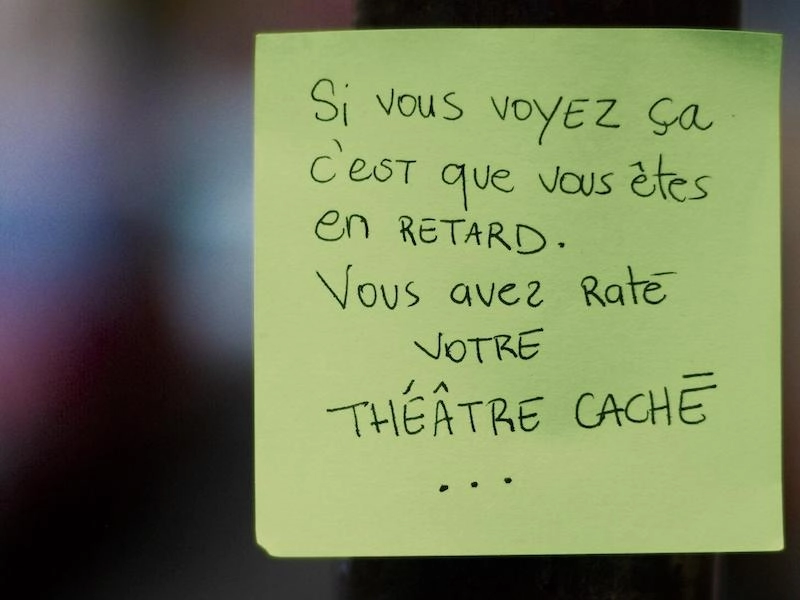 Si vous voyez ça
c'est que vous êtes
en RETARD.
Vous avez Raté
VOTRE
THÉÂTRE CACHÉ
...